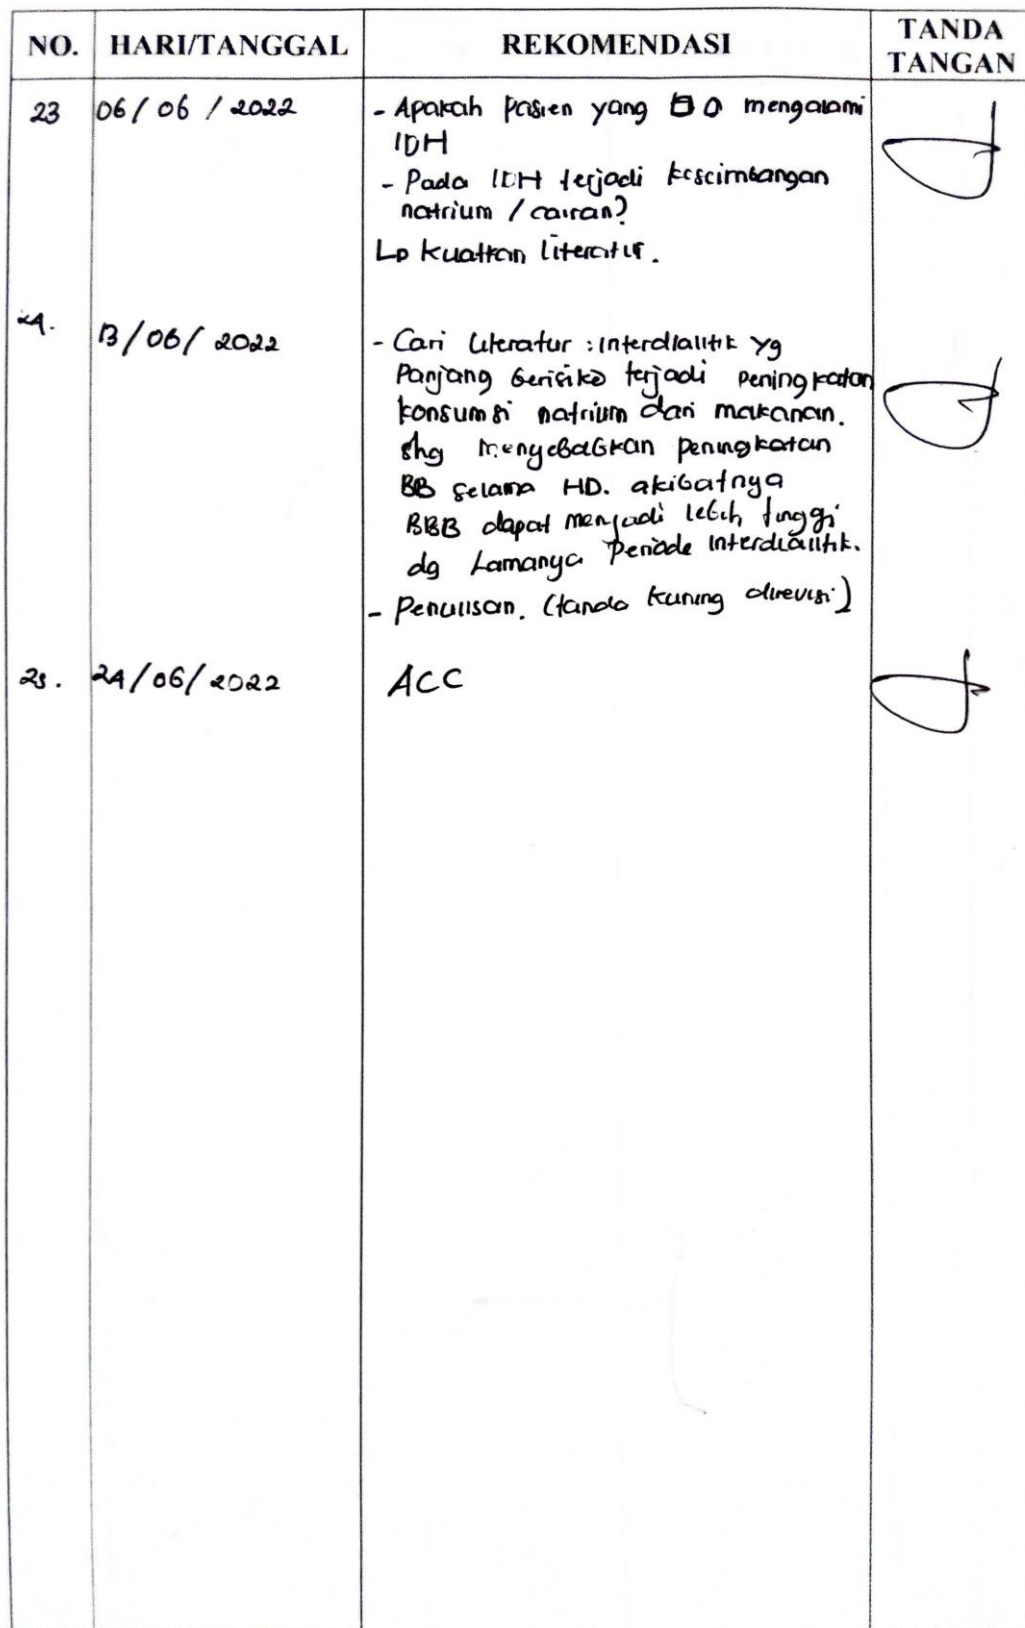 NO. HARI/TANGGAL REKOMENDASI TANDA TANGAN
23 06/06/2022 - Apakah pasien yang mengalami
IDH
- Pada IDH terjadi keseimbangan
natrium / cairan?
Lp kuatkan literatur.
24. 13/06/2022 - Cari literatur : interdialitik yg
Panjang berisiko terjadi peningkatan
konsumsi natrium dari makanan.
shg menyebabkan peningkatan
BB selama HD. akibatnya
BBB dapat menjadi lebih tinggi
dg Lamanya Periode interdialitik.
- Penulisan. (tanda kuning direvisi)
25. 24/06/2022 ACC